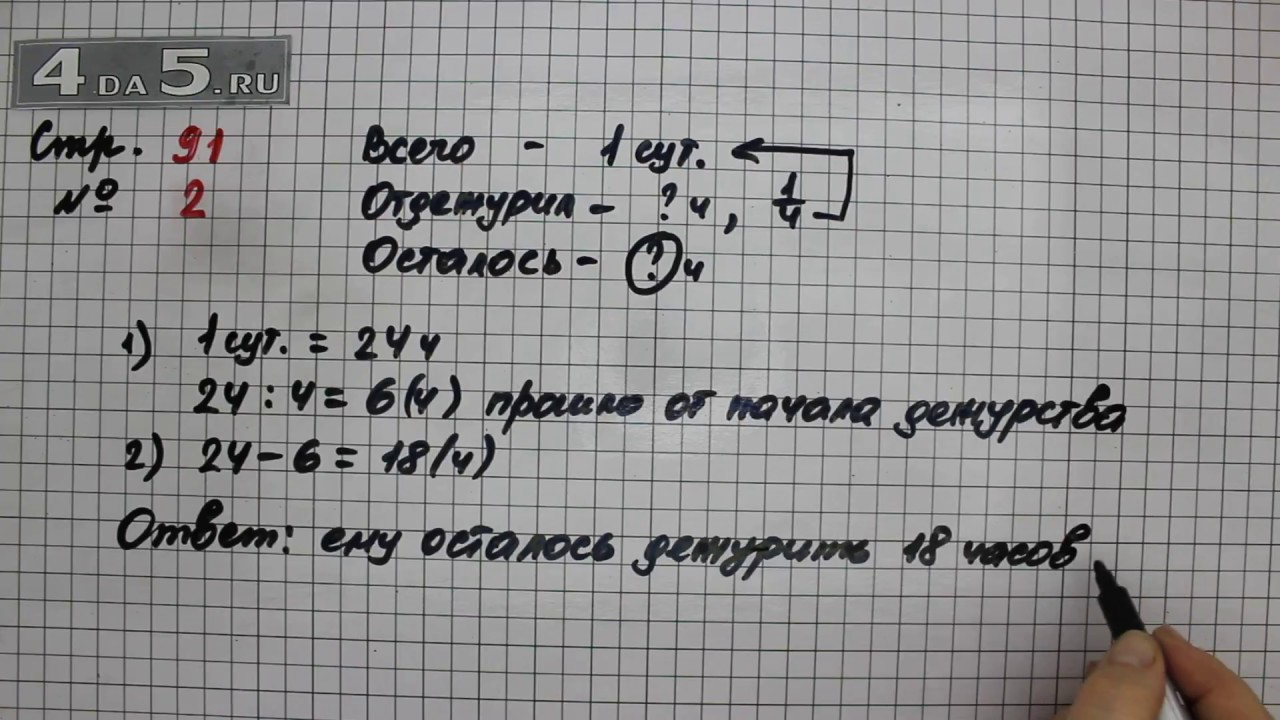 4DA5.RU
Стр. 91
№ 2
Всего - 1 сут.
Отдежурил - ? ч, 1/4
Осталось - ? ч
1) 1 сут. = 24 ч
24 : 4 = 6 (ч) прошло от начала дежурства
2) 24 - 6 = 18 (ч)
Ответ: ему осталось дежурить 18 часов